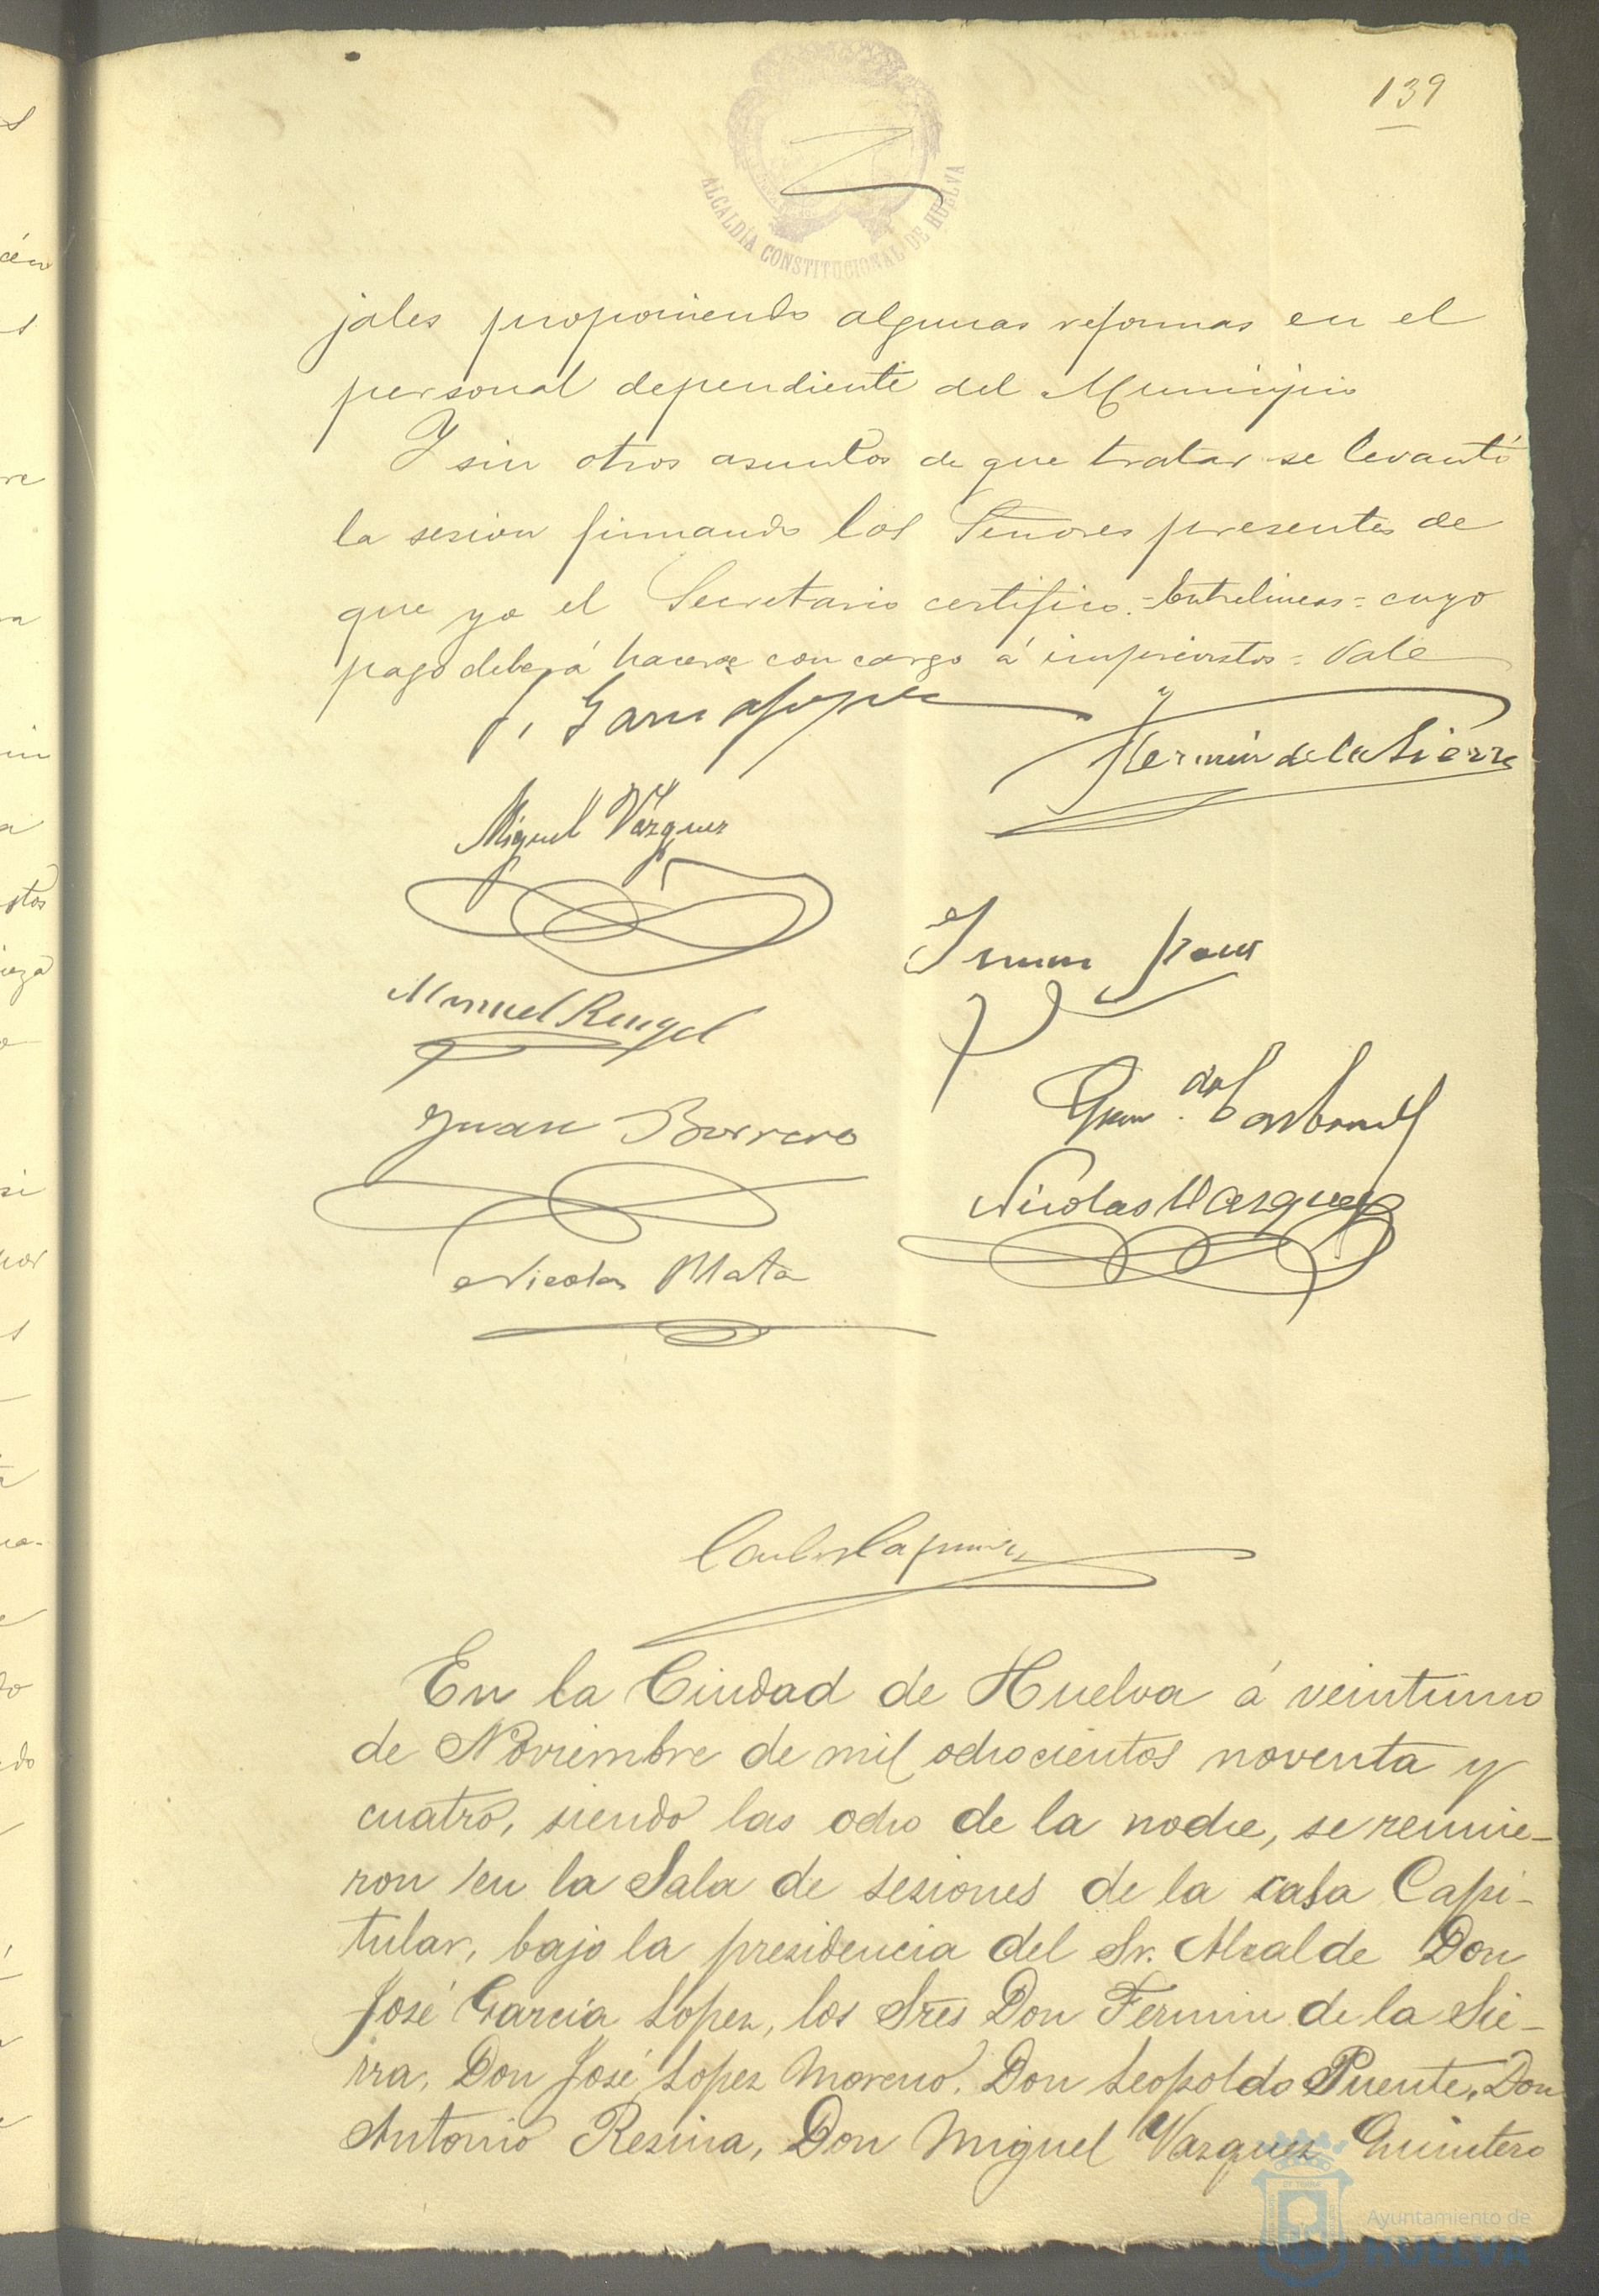 139
ALCALDÍA CONSTITUCIONAL DE HUELVA
jales proponiendo algunas reformas en el
personal dependiente del Municipio
Y sin otros asuntos de que tratar se levantó
la sesion firmando los Señores presentes de
que yo el Secretario certifico.=Entrelineas=cuyo
pago deberá hacerse con cargo á imprevistos=Vale
J. Garcia Lopez
Fermin de la Sierra
Miguel Vazquez
Manuel Rengel
Juan Borrero
Nicolas Vazquez
Nicolas Mata
En la Ciudad de Huelva á veintiuno
de Noviembre de mil ochocientos noventa y
cuatro, siendo las ocho de la noche, se reunie-
ron en la Sala de sesiones de la casa Capi-
tular, bajo la presidencia del Sr. Alcalde Don
José Garcia Lopez, los Sres Don Fermin de la Sie-
rra, Don José Lopez Moreno, Don Leopoldo Puente, Don
Antonio Resina, Don Miguel Vazquez Quintero
Ayuntamiento de
HUELVA